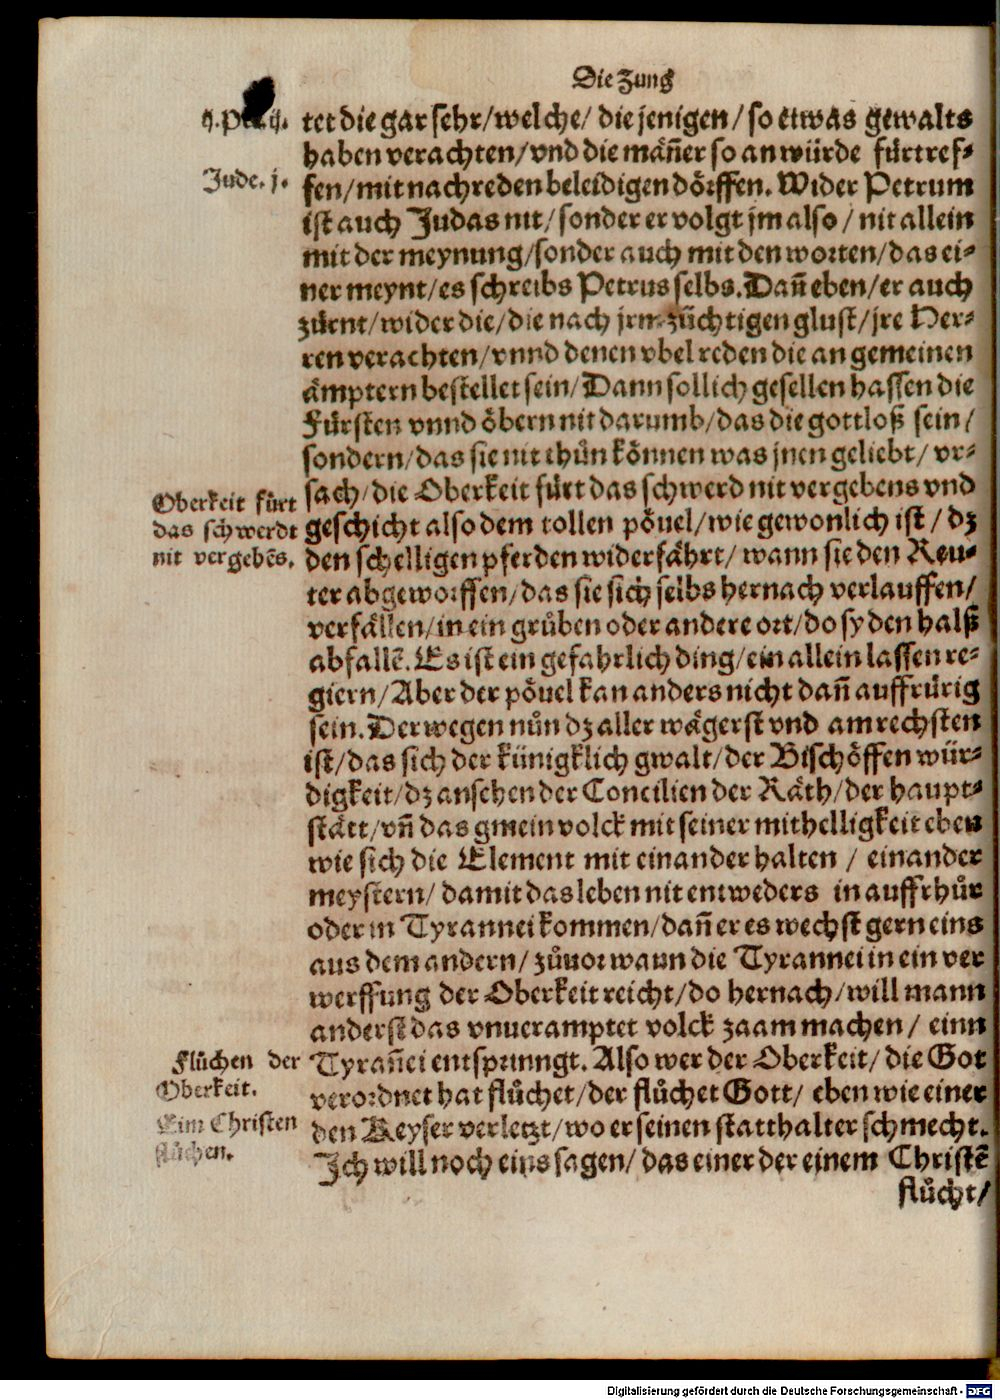 Die Zung
tet die gar sehr/welche/ die jenigen/ so etwas gewalts
haben verachten/vnd die mañer so an würde fürtref-
fen/mit nachreden beleidigen dörffen. Wider Petrum
ist auch Judas nit/ sonder er volgt jm also / nit allein
mit der meynung/sonder auch mit den worten/das ei-
ner meynt/es schreibs Petrus selbs. Dañ eben/er auch
zürnt/wider die/die nach jrm züchtigen glust/jre Her-
ren verachten/vnnd denen vbel reden die an gemeinen
ämptern bestellet sein/Dann sollich gesellen hassen die
Fürsten vnnd öbern nit darumb/das die gottloß sein/
sondern/das sie nit thůn können was jnen geliebt/ vr-
sach/die Oberkeit fürt das schwerd nit vergebens vnd
geschicht also dem tollen pövel/wie gewonlich ist / dz
den schelligen pferden widerfährt/ wann sie den Reu-
ter abgeworffen/das sie sich selbs hernach verlauffen/
verfallen/in ein grůben oder andere ort/do sy den halß
abfallē. Es ist ein gefahrlich ding/ein allein lassen re-
giern/Aber der pövel kan anders nicht dañ auffrürig
sein. Derwegen nůn dz aller wägerst vnd am rechsten
ist/das sich der künigklich gwalt/der Bischöffen wür-
digkeit/dz ansehen der Concilien der Räth/der haupt-
stätt/vñ das gmein volck mit seiner mithelligkeit eben
wie sich die Element mit einander halten / einander
meystern/ damit das leben nit entweders in auffrhůr
oder in Tyrannei kommen/dañ er es wechst gern eins
aus dem andern/ zůuor wann die Tyrannei in ein ver
werffung der Oberkeit reicht/do hernach/will mann
anderst das vnueramptet volck zaam machen/ einn
Tyrañei entsprinngt. Also wer der Oberkeit/die Got
verordnet hat flůchet/der flůchet Gott/ eben wie einer
den Keyser verletzt/wo er seinen statthalter schmecht.
Ich will noch eins sagen/ das einer der einem Christē
flůcht/
Jude. j.
Oberkeit fürt
das schwerdt
nit vergebēs.
Flůchen der
Oberkeit.
Eim Christen
flůchen.
Digitalisierung gefördert durch die Deutsche Forschungsgemeinschaft - DFG